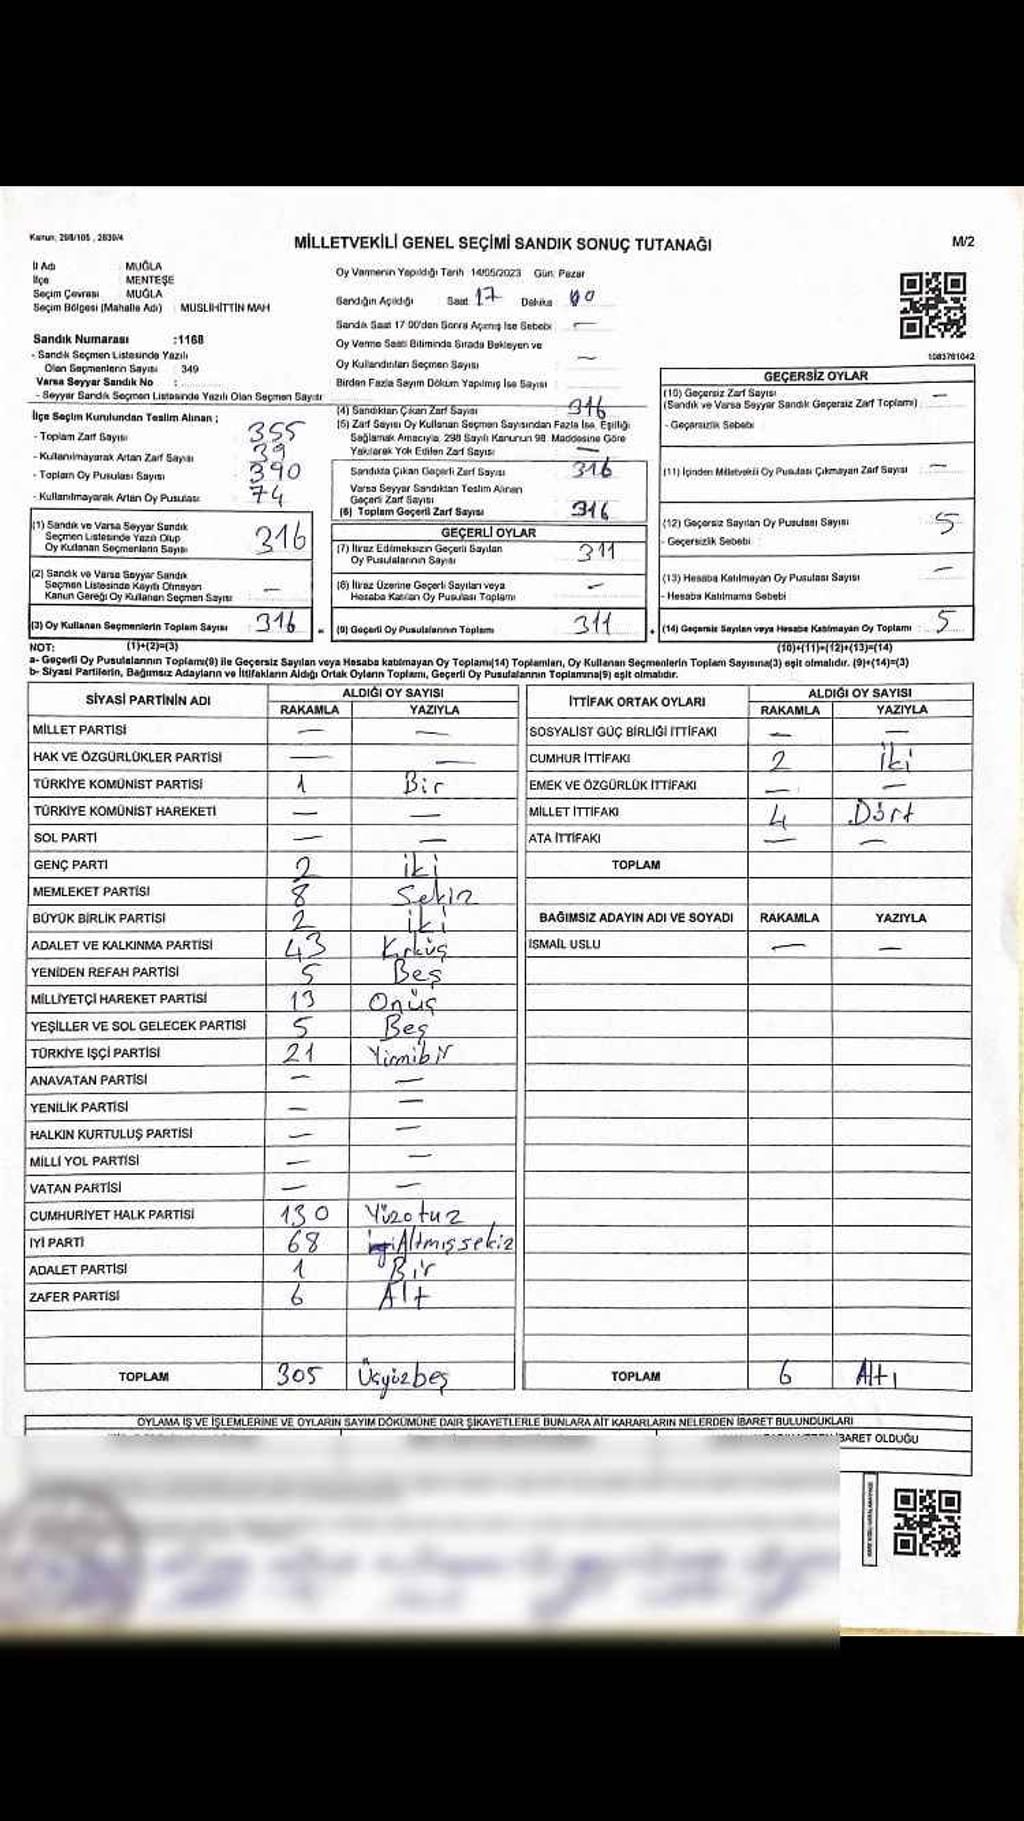 Kanun, 298/105 , 2839/4
MİLLETVEKİLİ GENEL SEÇİMİ SANDIK SONUÇ TUTANAĞI
M/2
İl Adı : MUĞLA
İlçe : MENTEŞE
Seçim Çevresi : MUĞLA
Seçim Bölgesi (Mahalle Adı) : MUSLİHİTTİN MAH
Sandık Numarası :1168
- Sandık Seçmen Listesinde Yazılı
Olan Seçmenlerin Sayısı : 349
Varsa Seyyar Sandık No :
- Seyyar Sandık Seçmen Listesinde Yazılı Olan Seçmen Sayısı :
İlçe Seçim Kurulundan Teslim Alınan ;
- Toplam Zarf Sayısı 355
- Kullanılmayarak Artan Zarf Sayısı 39
- Toplam Oy Pusulası Sayısı 390
- Kullanılmayarak Artan Oy Pusulası 74
(1) Sandık ve Varsa Seyyar Sandık
Seçmen Listesinde Yazılı Olup
Oy Kullanan Seçmenlerin Sayısı 316
(2) Sandık ve Varsa Seyyar Sandık
Seçmen Listesinde Kayıtlı Olmayan
Kanun Gereği Oy Kullanan Seçmen Sayısı : —
(3) Oy Kullanan Seçmenlerin Toplam Sayısı 316
(1)+(2)=(3)
Oy Vermenin Yapıldığı Tarih 14/05/2023 Gün: Pazar
Sandığın Açıldığı Saat 17 Dakika 00
Sandık Saat 17:00'den Sonra Açılmış İse Sebebi : —
Oy Verme Saati Bitiminde Sırada Bekleyen ve
Oy Kullandırılan Seçmen Sayısı : —
Birden Fazla Sayım Döküm Yapılmış İse Sayısı :
(4) Sandıktan Çıkan Zarf Sayısı 316
(5) Zarf Sayısı Oy Kullanan Seçmen Sayısından Fazla İse, Eşitliği
Sağlamak Amacıyla, 298 Sayılı Kanunun 98. Maddesine Göre
Yakılarak Yok Edilen Zarf Sayısı : —
Sandıkta Çıkan Geçerli Zarf Sayısı 316
Varsa Seyyar Sandıktan Teslim Alınan
Geçerli Zarf Sayısı
(6) Toplam Geçerli Zarf Sayısı 316
GEÇERLİ OYLAR
(7) İtiraz Edilmeksizin Geçerli Sayılan
Oy Pusulalarının Sayısı 311
(8) İtiraz Üzerine Geçerli Sayılan veya
Hesaba Katılan Oy Pusulası Toplamı —
(9) Geçerli Oy Pusulalarının Toplamı 311
1083761042
GEÇERSİZ OYLAR
(10) Geçersiz Zarf Sayısı —
(Sandık ve Varsa Seyyar Sandık Geçersiz Zarf Toplamı)
- Geçersizlik Sebebi :
(11) İçinden Milletvekili Oy Pusulası Çıkmayan Zarf Sayısı —
(12) Geçersiz Sayılan Oy Pusulası Sayısı 5
- Geçersizlik Sebebi :
(13) Hesaba Katılmayan Oy Pusulası Sayısı —
- Hesaba Katılmama Sebebi
(14) Geçersiz Sayılan veya Hesaba Katılmayan Oy Toplamı 5
(10)+(11)+(12)+(13)=(14)
NOT:
a- Geçerli Oy Pusulalarının Toplamı(9) ile Geçersiz Sayılan veya Hesaba katılmayan Oy Toplamı(14) Toplamları, Oy Kullanan Seçmenlerin Toplam Sayısına(3) eşit olmalıdır. (9)+(14)=(3)
b- Siyasi Partilerin, Bağımsız Adayların ve İttifakların Aldığı Ortak Oyların Toplamı, Geçerli Oy Pusulalarının Toplamına(9) eşit olmalıdır.
SİYASİ PARTİNİN ADI ALDIĞI OY SAYISI
RAKAMLA YAZIYLA
MİLLET PARTİSİ — —
HAK VE ÖZGÜRLÜKLER PARTİSİ — —
TÜRKİYE KOMÜNİST PARTİSİ 1 Bir
TÜRKİYE KOMÜNİST HAREKETİ — —
SOL PARTİ — —
GENÇ PARTİ 2 iki
MEMLEKET PARTİSİ 8 Sekiz
BÜYÜK BİRLİK PARTİSİ 2 iki
ADALET VE KALKINMA PARTİSİ 43 Kırküç
YENİDEN REFAH PARTİSİ 5 Beş
MİLLİYETÇİ HAREKET PARTİSİ 13 Onüç
YEŞİLLER VE SOL GELECEK PARTİSİ 5 Beş
TÜRKİYE İŞÇİ PARTİSİ 21 Yirmibir
ANAVATAN PARTİSİ — —
YENİLİK PARTİSİ — —
HALKIN KURTULUŞ PARTİSİ — —
MİLLİ YOL PARTİSİ — —
VATAN PARTİSİ — —
CUMHURİYET HALK PARTİSİ 130 Yüzotuz
İYİ PARTİ 68 Altmışsekiz
ADALET PARTİSİ 1 Bir
ZAFER PARTİSİ 6 Alt
TOPLAM 305 Üçyüzbeş
İTTİFAK ORTAK OYLARI ALDIĞI OY SAYISI
RAKAMLA YAZIYLA
SOSYALİST GÜÇ BİRLİĞİ İTTİFAKI — —
CUMHUR İTTİFAKI 2 iki
EMEK VE ÖZGÜRLÜK İTTİFAKI — —
MİLLET İTTİFAKI 4 Dört
ATA İTTİFAKI — —
TOPLAM
BAĞIMSIZ ADAYIN ADI VE SOYADI RAKAMLA YAZIYLA
İSMAİL USLU — —
TOPLAM 6 Altı
OYLAMA İŞ VE İŞLEMLERİNE VE OYLARIN SAYIM DÖKÜMÜNE DAİR ŞİKAYETLERLE BUNLARA AİT KARARLARIN NELERDEN İBARET BULUNDUKLARI
İBARET OLDUĞU